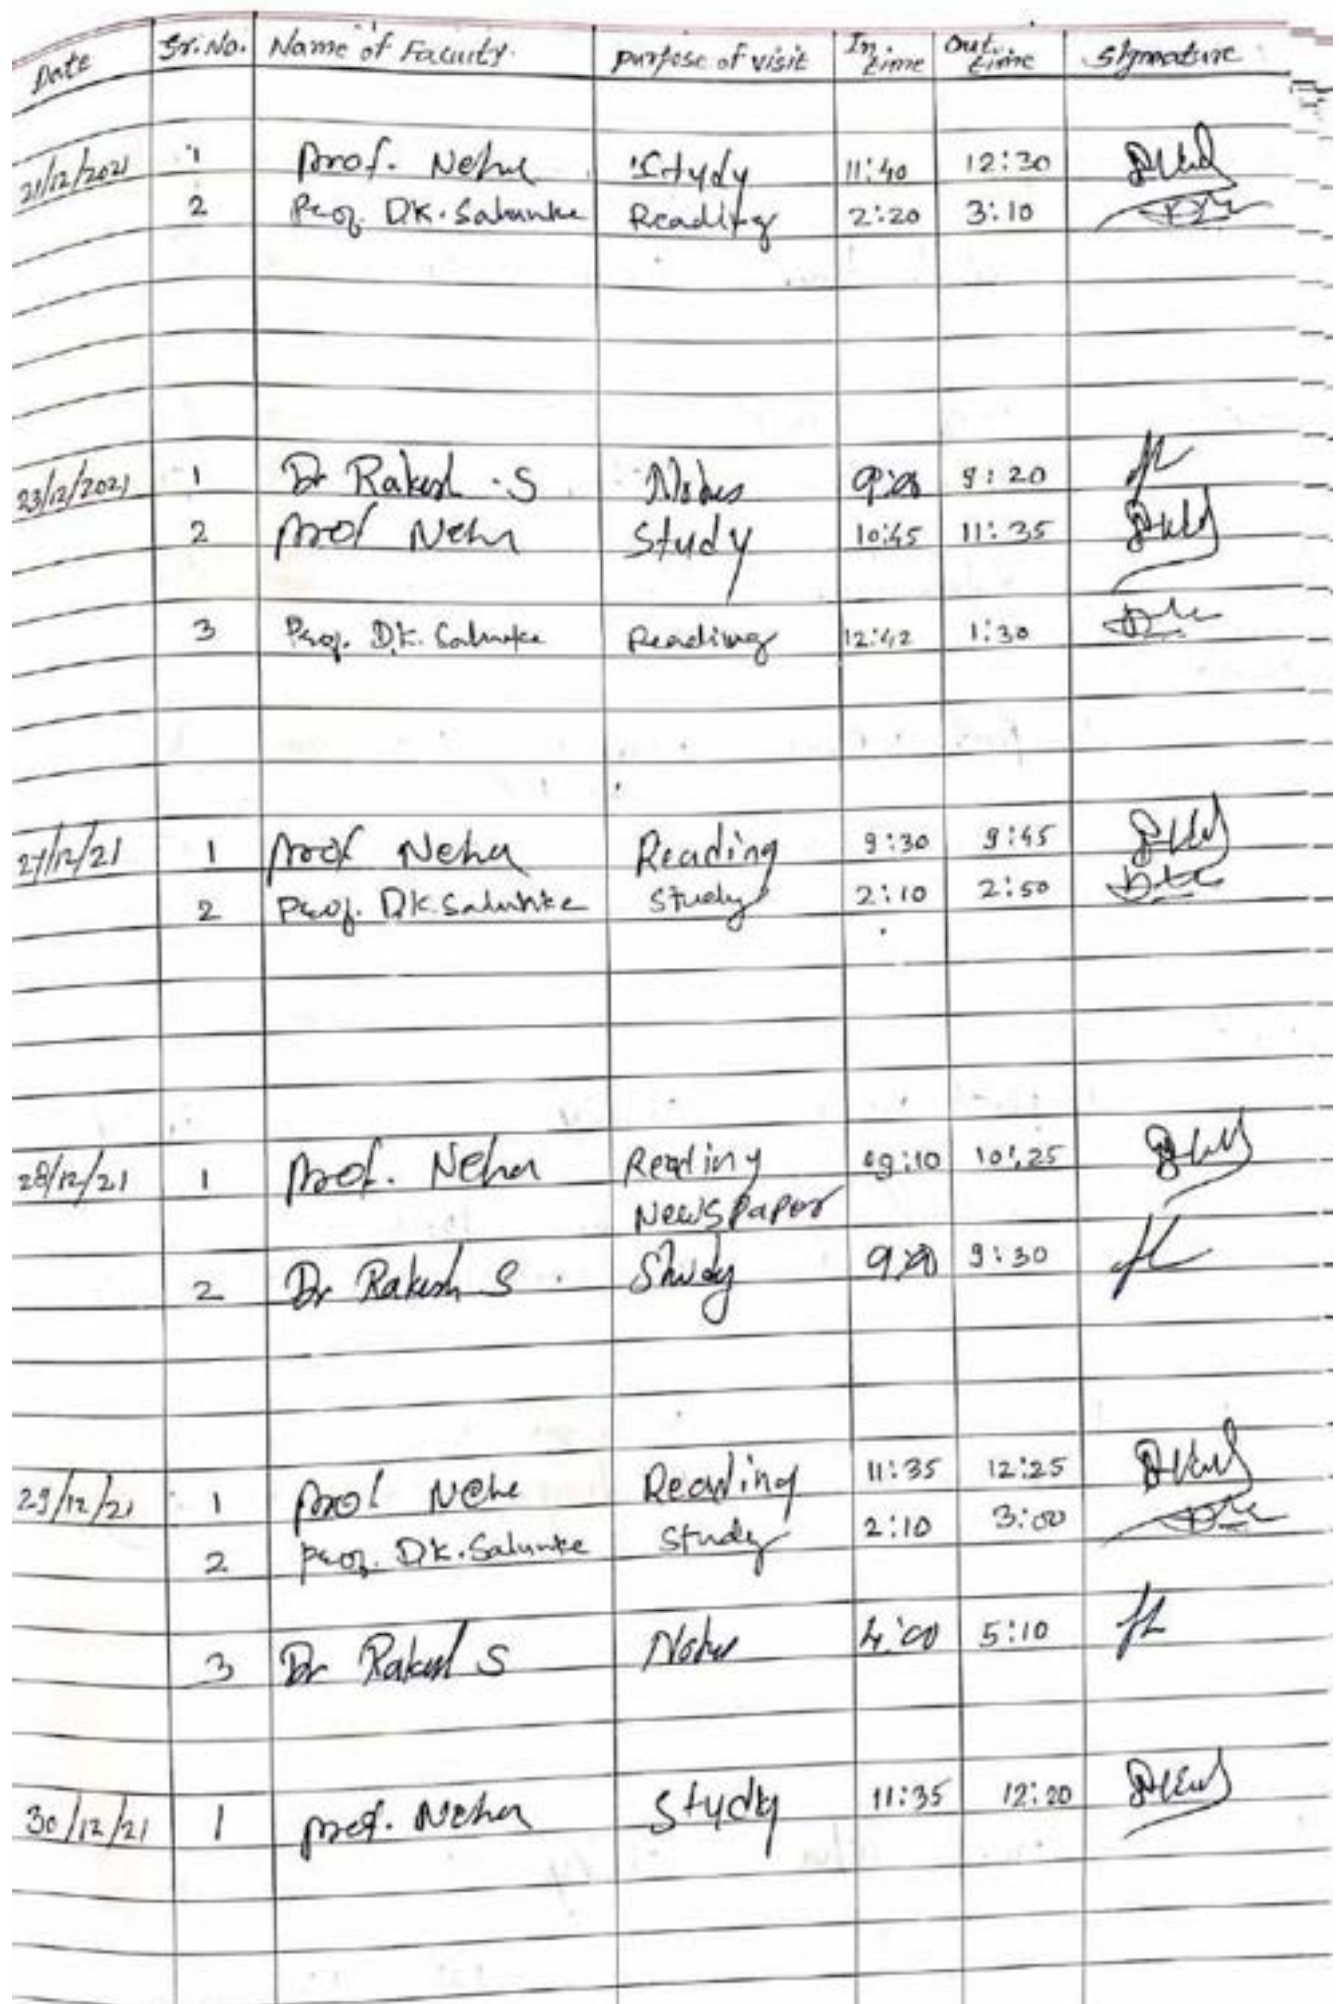 Date Sr. No. Name of Faculty. purpose of visit In time Out time Signature
21/12/2021 1 Prof. Neha Study 11:40 12:30
2 Prof. D.K. Salunke Reading 2:20 3:10
23/12/2021 1 Dr Rakesh S Notes 9:20
2 Prof Neha Study 10:45 11:35
3 Prof. D.K. Salunke Reading 12:42 1:30
27/12/21 1 Prof Neha Reading 9:30 9:45
2 Prof. D.K. Salunke Study 2:10 2:50
28/12/21 1 Prof. Neha Reading 09:10 10:25
Newspaper
2 Dr Rakesh S Study 9:30
29/12/21 1 Prof Neha Reading 11:35 12:25
2 Prof. D.K. Salunke Study 2:10 3:00
3 Dr Rakesh S Notes 4:00 5:10
30/12/21 1 Prof. Neha Study 11:35 12:20